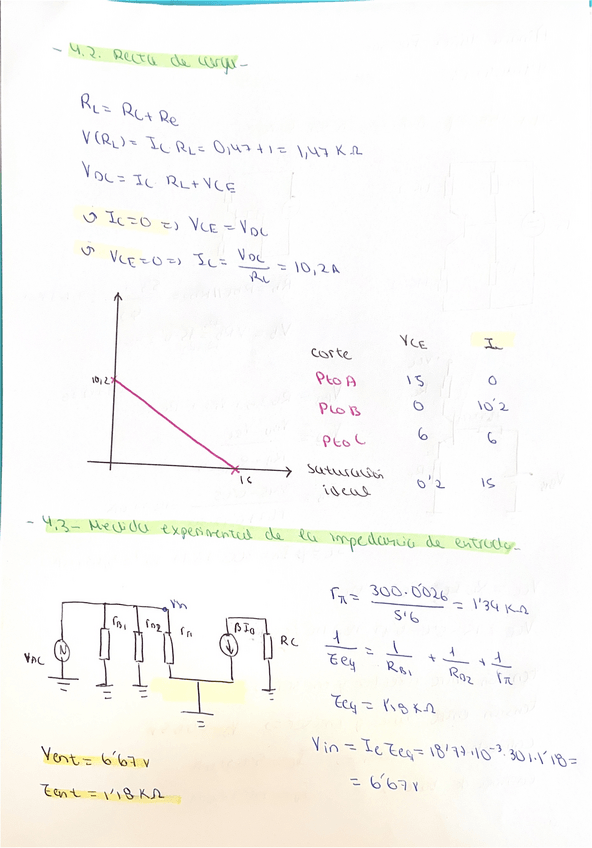 - 4.2. Recta de carga -
RL = RC + Re
V(RL) = IC RL = 0,47 + 1 = 1,47 KΩ
VDC = IC RL + VCE
IC = 0 => VCE = VDC
VCE = 0 => IC = VDC / RL = 10,2A
VCE IC
corte
10,2 Pto A 15 0
Pto B 0 10'2
Pto C 6 6
saturación
ideal 0'2 15
15
- 4.3 - Medida experimental de la impedancia de entrada -
rπ = 300 · 0'026 / 5'6 = 1'34 KΩ
Vin
VAC rB1 rB2 rπ BIB RC
1/Zeq = 1/RB1 + 1/RB2 + 1/rπ
Zeq = 1'18 KΩ
Vin = IC Zeq = 18'77·10⁻³·301·1'18 =
= 6'67 V
Vent = 6'67 V
Zent = 1'18 KΩ